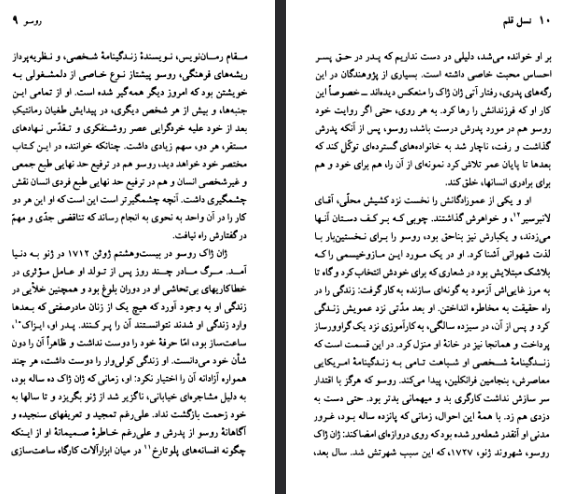 روسو ۹
مقام رمان‌نویس، نویسندهٔ زندگینامهٔ شخصی، و نظریه‌پرداز
ریشه‌های فرهنگی، روسو پیشتاز نوع خاصی از دلمشغولی به
خویشتن بود که امروز دیگر همه‌گیر شده است. او از تمامی این
جنبه‌ها، و بیش از هر شخص دیگری، در پیدایش طغیان رمانتیک
بعد از خود علیه خردگرایی عصر روشنفکری و تقدّس نهادهای
مستقر، هر دو، سهم زیادی داشت. چنانکه خواننده در این کتاب
مختصر خود خواهد دید، روسو هم در ترفیع حد نهایی طبع جمعی
و غیرشخصی انسان و هم در ترفیع حد نهایی طبع فردی انسان نقش
چشمگیری داشت. آنچه چشمگیرتر است این است که او این هر دو
کار را در آن واحد به نحوی به انجام رساند که تناقضی جدّی و مهمّ
در گفتارش راه نیافت.
ژان ژاک روسو در بیست‌وهشتم ژوئن ۱۷۱۲ در ژنو به دنیا
آمد. مرگ مادر چند روز پس از تولد او عامل مؤثری در
خطاکاریهای بی‌تحاشی او در دوران بلوغ بود و همچنین خلأیی در
زندگی او به وجود آورد که هیچ یک از زنان مادرصفتی که بعدها
وارد زندگی او شدند نتوانستند آن را پر کنند. پدر او، ایزاک۱۰،
ساعت‌ساز بود، امّا حرفهٔ خود را دوست نداشت و ظاهراً آن را دون
شأن خود می‌دانست. او زندگی کولی‌وار را دوست داشت، هر چند
همواره آزادانه آن را اختیار نکرد: او، زمانی که ژان ژاک ده ساله بود،
به دلیل مشاجره‌ای خیابانی، ناگزیر شد از ژنو بگریزد و تا سالها به
خود زحمت بازگشت نداد. علی‌رغم تمجید و تعریفهای سنجیده و
آگاهانهٔ روسو از پدرش و علی‌رغم خاطرهٔ صمیمانهٔ او از اینکه
چگونه افسانه‌های پلوتارخ۱۱ در میان ابزارآلات کارگاه ساعت‌سازی
۱۰ نسل قلم
بر او خوانده می‌شد، دلیلی در دست نداریم که پدر در حق پسر
احساس محبت خاصی داشته است. بسیاری از پژوهندگان در این
رگه‌های پدری، رفتار آتی ژان ژاک را منعکس دیده‌اند ــ خصوصاً این
کار او که فرزندانش را رها کرد. به هر روی، حتی اگر روایت خود
روسو هم در مورد پدرش درست باشد، روسو، پس از آنکه پدرش
گذاشت و رفت، ناچار شد به خانواده‌های گسترده‌ای توکّل کند که
بعدها تا پایان عمر تلاش کرد نمونه‌ای از آن را، هم برای خود و هم
برای برادری انسانها، خلق کند.
او و یکی از عموزادگانش را نخست نزد کشیش محلّی، آقای
لانبرسیر۱۲، و خواهرش گذاشتند. چوبی که بر کف دستان آنها
می‌زدند، و یکبارش نیز بناحق بود، روسو را برای نخستین‌بار با
لذت شهوانی آشنا کرد. او در یک مورد این مازوخیسمی را که
بلاشک مبتلایش بود در شعاری که برای خودش انتخاب کرد و گاه تا
به مرز غایی‌اش آزمود به گونه‌ای سازنده به کار گرفت: زندگی را در
راه حقیقت به مخاطره انداختن. او بعد مدّتی نزد عمویش زندگی
کرد و پس از آن، در سیزده سالگی، به‌کارآموزی نزد یک گراوورساز
پرداخت و همانجا نیز در خانهٔ او منزل کرد. در این قسمت است که
زندگینامهٔ شخصی او شباهت تامی به زندگینامهٔ امریکایی
معاصرش، بنجامین فرانکلین، پیدا می‌کند. روسو که هرگز با اقتدار
سر سازش نداشت کارگری بد و میهمانی بدتر بود. حتی دست به
دزدی هم زد. با همهٔ این احوال، زمانی که پانزده ساله بود، غرور
مدنی او آنقدر شعله‌ور شده بود که روی دروازه‌ای امضا کند: ژان ژاک
روسو، شهروند ژنو، ۱۷۲۷، که این سبب شهرتش شد. سال بعد،